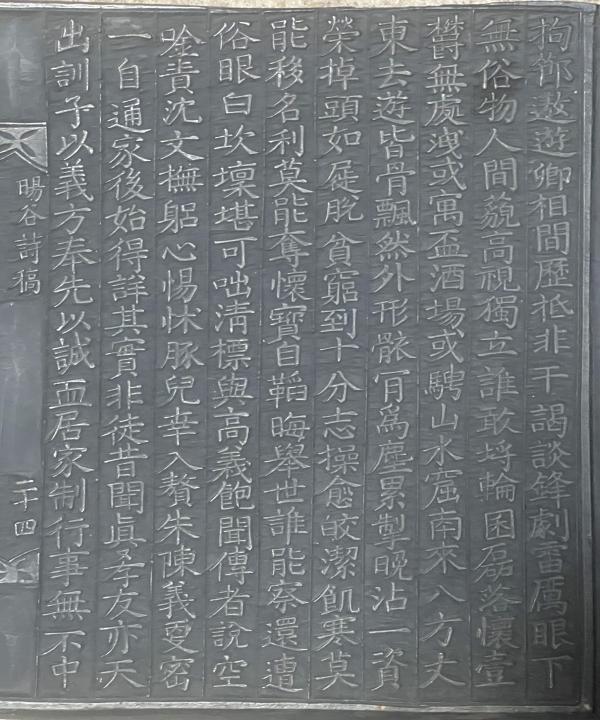 拘鄧遨遊卿相間歷抵非干謁談鋒劇雷厲眼下
無俗物人間藐高視獨立誰敢埒輪囷磊落懷壹
欝無處洩或寓盃酒場或騁山水窟南來八方丈
東去遊皆骨飄然外形骸肎爲塵累掣晚沾一資
榮掉頭如屣脫貧窮到十分志操愈皎潔飢寒莫
能移名利莫能奪懷寶自韜晦舉世誰能察還遭
俗眼白坎壈堪可咄淸標與高義飽聞傳者說空
唫責沈文撫躬心惕怵豚兒幸入贅朱陳義更密
一自通家後始得詳其實非徒昔聞眞孝友亦天
出訓子以義方奉先以誠血居家制行事無不中
暘谷詩稿
二十四